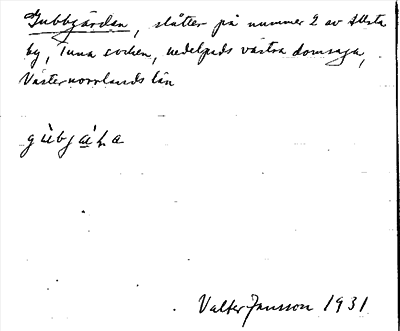 Gubbgården, slåtter på nummer 2 av Allsta
by, Tuna socken, Medelpads västra domsaga,
Västernorrlands län
gùbjáɫa
Valter Jansson 1931